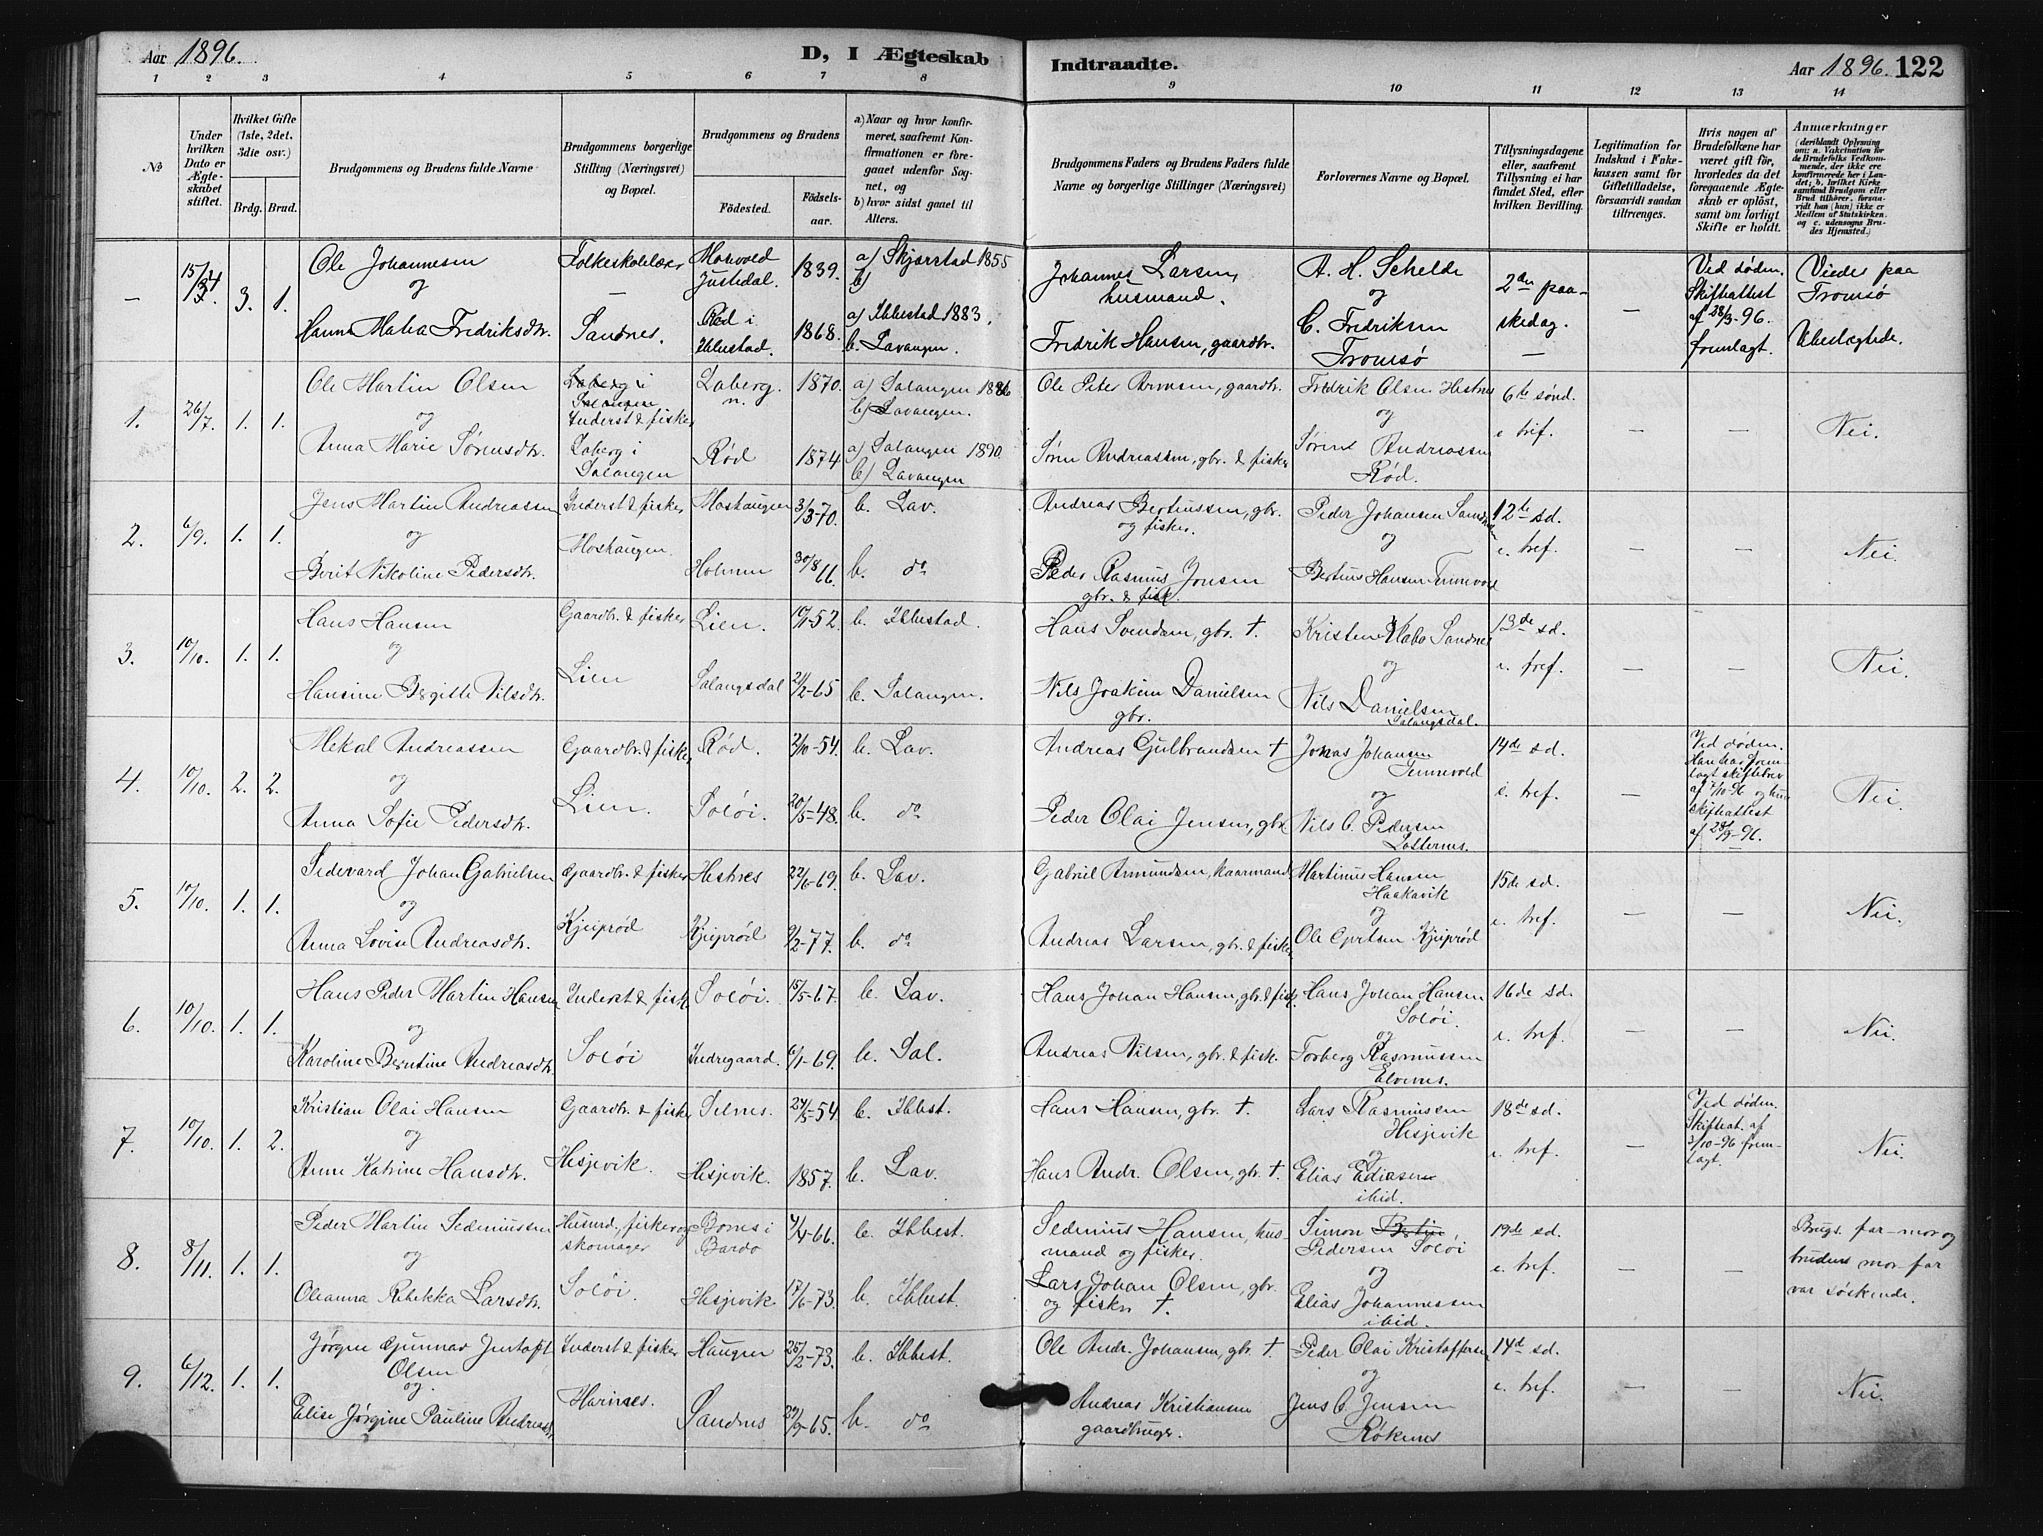 Aar 1896.
D, I Ægteskab
Indtraadte.
Aar 1896. 122
1 2 3 4 5 6 7 8 9 10 11 12 13 14
No
Under hvilken Dato er Ægteskabet stiftet.
Hvilket Gifte (1ste, 2det, 3die osv.)
Brdg. Brud.
Brudgommens og Brudens fulde Navne
Brudgommens borgerlige Stilling (Næringsvei) og Bopæl.
Brudgommens og Brudens
Födested. Födselsaar.
a) Naar og hvor konfirmeret, saafremt Konfirmationen er foregaaet udenfor Sognet, og
b) hvor sidst gaaet til Alters.
Brudgommens Faders og Brudens Faders fulde Navne og borgerlige Stillinger (Næringsvei)
Forlovernes Navne og Bopæl.
Tillysningsdagene eller, saafremt Tillysning ei har fundet Sted, efter hvilken Bevilling.
Legitimation for Indskud i Enkekassen samt for Giftetilladelse, forsaavidt saadan tiltrænges.
Hvis nogen af Brudefolkene har været gift för, hvorledes da det foregaaende Ægteskab er oplöst, samt om lovligt Skifte er holdt.
Anmærkninger (deriblandt Oplysning om: a. Vakcination for de Brudefolks Vedkommende, der ikke ere konfirmerede her i Landet; b. hvilket Kirkesamfund Brudgom eller Brud tilhörer, forsaavidt han (hun) ikke er Medlem af Statskirken, og c. udensogns Brudes Hjemsted.)
— 3. 1.
Ole Johannesen
og
Hanna Fredriksdtr.
Folkeskolelærer
Sandnes.
Justedal. 1839.
Rød i Ibbestad. 1868.
a) Skjærstad 1855
b)
a) Ibbestad 1883.
b. Lavangen.
Johannes Larsen, husmand.
Fredrik Hansen, gaardbr.
A. H. Schelde
og
C. Fredriksen
Tromsø
2den paaskedag.
—
—
Ved døden. Skifteattest af 28/3-96. fremlagt.
Viede paa Tromsø
Ubeslægtede.
1. 26/7. 1. 1.
Ole Martin Olsen
og
Anna Marie Sørensdtr.
Laberg i Salangen
Inderst & fisker
Laberg i Salangen
Laberg n. 1870.
Rød 1874
a) Salangen 1886
b) Lavangen.
a) Salangen 1890.
b) Lavangen
Ole Peter Arnesen, gaardbr.
Søren Andreassen, gbr. & fisker
Fredrik Olsen Hestnes
og
Sørent Andreassen
Rød.
6te sønd. e. tref.
— —
Nei.
2. 6/9. 1. 1.
Jens Martin Andreassen
og
Berit Nikoline Pedersdtr.
Inderst & fisker
Moshaugen
Moshaugen 3/3-70.
Holmen 30/8 66.
b. Lav.
b. do
Andreas Bertinussen, gbr. og fisker.
Peder Rasmus Jensen
gbr. & fisk.
Peder Johansen Sandnes
og
Bertius Hansen Tennevold
12te sd. e. tref.
— —
Nei
3. 10/10. 1. 1.
Hans Hansen
og
Hansine Birgitte Nilsdtr.
Gaardbr. & fisker
Lien
Lien. 10/1-52.
Salangsdal 21/2-65
b. Ibbestad.
b. Salangen.
Hans Svendsen, gbr. †.
Nils Joakim Danielsen
gbr.
Kristen Sandnes
og
Nils Danielsen
Salangsdal.
13de sd. e. tref.
— —
Nei.
4. 10/10. 2. 2.
Mekal Andreassen
og
Anna Sofie Pedersdtr.
Gaardbr. & fisker
Lien.
Rød. 2/10-54.
Soløi. 20/5-48.
b. Lav.
b. do
Andreas Gulbrandsen †
Peder Olai Jensen, gbr.
Jonas Johansen
Tennevold
og
Nils C. Pedersen
14de sd. e. tref.
—
Ved døden. Han har fremlagt skiftebrev af 7/10-96 og hun skifteattest af 28/9-96.
Nei.
5. 10/10. 1. 1.
Sedevard Johan Gabrielsen
og
Anna Lovise Andreasdtr.
Gaardbr. & fisker
Kjeiprød
Hestnes 22/6-69.
Kjeiprød 9/2-77.
b. Lav.
b. do
Gabriel Amundsen, kaarmand
Andreas Larsen, gbr. & fisker
Martinus Hansen
Haakavik
og
Ole Kjeiprød
15de sd. e. tref.
— —
Nei.
6. 10/10. 1. 1.
Hans Peder Martin Hansen
og
Karoline Berntine Andreasdtr.
Inderst & fisker
Soløi
Soløi. 15/5-67.
Indregaard. 6/1-69.
b. Lav.
b. Sal.
Hans Johan Hansen, gbr. & fisk.
Andreas Nilsen, gbr. & fisk.
Hans Johan Hansen
Soløi.
og
Torberg Rasmussen
Elvenes.
16de sd. e. tref.
— —
Nei
7. 10/10. 1. 2.
Kristian Olai Hansen
og
Anne Katrine Hansdtr.
Gaardbr. & fisker
Hesjevik.
Selnes. 24/5-54
Hesjevik. 1857.
b. Ibbest.
b. Lav.
Hans Hansen, gbr. †.
Hans Andr. Olsen, gbr. †.
Lars Rasmussen
Hesjevik
og
Elias
ibid.
18de sd. e. tref.
—
Ved døden. Skifteat. af 3/10-96 fremlagt.
Nei.
8. 8/11. 1. 1.
Peder Martin Sedeniussen
og
Oleanna Rebekka Larsdtr.
Husmd., fisker og skomager
Soløi.
Bones i Bardo 4/4-66.
Hesjevik 17/6-73.
b. Ibbest.
b. Ibbest.
Sedenius Hansen, husmand og fisker.
Lars Johan Olsen, gbr. og fisker †.
Simon
Pedersen Soløi
og
Elias Johannessen
ibid.
19de sd. e. tref.
— —
Brugs. far-mor og brudens mor-far var søskende.
9. 6/12. 1. 1.
Jørgen Gunnar Olsen
og
Elise Jørgine Pauline Andreasdtr.
Inderst & fisker
Harnes.
Haugen 25/2-73.
Sandnes 29/9-65.
b. Ibbest.
b. do
Ole Andr. Johansen, gbr. †.
Andreas Kristiansen
gaardbruger.
Peder Olai Kristoffersen
og
Jens C. Jensen
Røkenes
14de sd. e. tref.
— —
Nei.